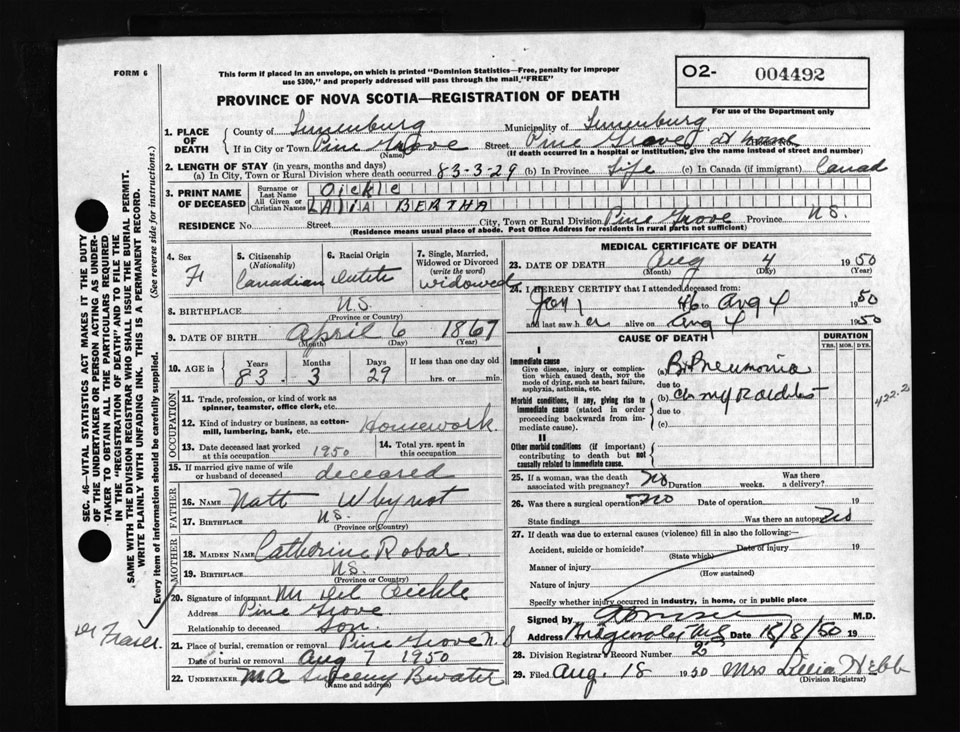 FORM 6
This form if placed in an envelope, on which is printed "Dominion Statistics—Free, penalty for improper
use $300," and properly addressed will pass through the mail "FREE"
O2- 004492
For use of the Department only
PROVINCE OF NOVA SCOTIA—REGISTRATION OF DEATH
1. PLACE OF DEATH
County of Lunenburg Municipality of Lunenburg
If in City or Town Pine Grove (Name) Street Pine Grove at home
(If death occurred in a hospital or institution, give the name instead of street and number)
2. LENGTH OF STAY (in years, months and days)
(a) In City, Town or Rural Division where death occurred 83-3-29 (b) In Province Life (c) In Canada (if immigrant) Canad
3. PRINT NAME OF DECEASED
Surname or Last Name Oickle
All Given or Christian Names BERTHA
RESIDENCE No. Street City, Town or Rural Division Pine Grove Province N.S.
(Residence means usual place of abode. Post Office Address for residents in rural parts not sufficient)
4. Sex F
5. Citizenship (Nationality) Canadian
6. Racial Origin Dutch
7. Single, Married, Widowed or Divorced (write the word) widowed
8. BIRTHPLACE N.S.
(Province or Country)
9. DATE OF BIRTH April 6 1867
(Month) (Day) (Year)
10. AGE in Years 83 Months 3 Days 29 If less than one day old hrs. or min.
OCCUPATION
11. Trade, profession, or kind of work as spinner, teamster, office clerk, etc.
12. Kind of industry or business, as cotton-mill, lumbering, bank, etc. Housework.
13. Date deceased last worked at this occupation 1950
14. Total yrs. spent in this occupation
15. If married give name of wife or husband of deceased deceased
FATHER
16. NAME Natt Whynot
17. BIRTHPLACE N.S.
(Province or Country)
MOTHER
18. MAIDEN NAME Catherine Robar.
19. BIRTHPLACE N.S.
(Province or Country)
20. Signature of informant Mr Oickle
Address Pine Grove
Relationship to deceased Son.
21. Place of burial, cremation or removal Pine Grove N.S
Date of burial or removal Aug 7 1950
22. UNDERTAKER M A Sweeny Bwater
(Name and address)
MEDICAL CERTIFICATE OF DEATH
23. DATE OF DEATH Aug 4 1950
(Month) (Day) (Year)
24. I HEREBY CERTIFY that I attended deceased from:
Jan 1 46 to Aug 4 1950
and last saw h er alive on Aug 4 1950
CAUSE OF DEATH
DURATION
YRS. MOS. DYS.
I
Immediate cause
Give disease, injury or complication which caused death, NOT the mode of dying, such as heart failure, asphyxia, asthenia, etc.
(a) Br Pneumonia
due to
Morbid conditions, if any, giving rise to immediate cause (stated in order proceeding backwards from immediate cause).
(b) Chr myocarditis
due to
(c)
422.2
II
Other morbid conditions (if important) contributing to death but not causally related to immediate cause.
25. If a woman, was the death associated with pregnancy? No Duration weeks. Was there a delivery?
26. Was there a surgical operation? No Date of operation 19
State findings Was there an autopsy? No
27. If death was due to external causes (violence) fill in also the following:
Accident, suicide or homicide? Date of injury 19
(State which)
Manner of injury
(How sustained)
Nature of injury
Specify whether injury occurred in industry, in home, or in public place
Signed by M.D.
Address Bridgewater N.S Date 18/8/50 19
28. Division Registrar's Record Number 2
29. Filed Aug. 18 1950 Mrs Lillia Hebb
(Division Registrar)
SEC. 46—VITAL STATISTICS ACT MAKES IT THE DUTY
OF THE UNDERTAKER OR PERSON ACTING AS UNDER-
TAKER TO OBTAIN ALL THE PARTICULARS REQUIRED
IN THE "REGISTRATION OF DEATH" AND TO FILE THE
SAME WITH THE DIVISION REGISTRAR WHO SHALL ISSUE THE BURIAL PERMIT.
WRITE PLAINLY WITH UNFADING INK. THIS IS A PERMANENT RECORD.
Every item of information should be carefully supplied. (See reverse side for instructions.)
Dr Fraser.